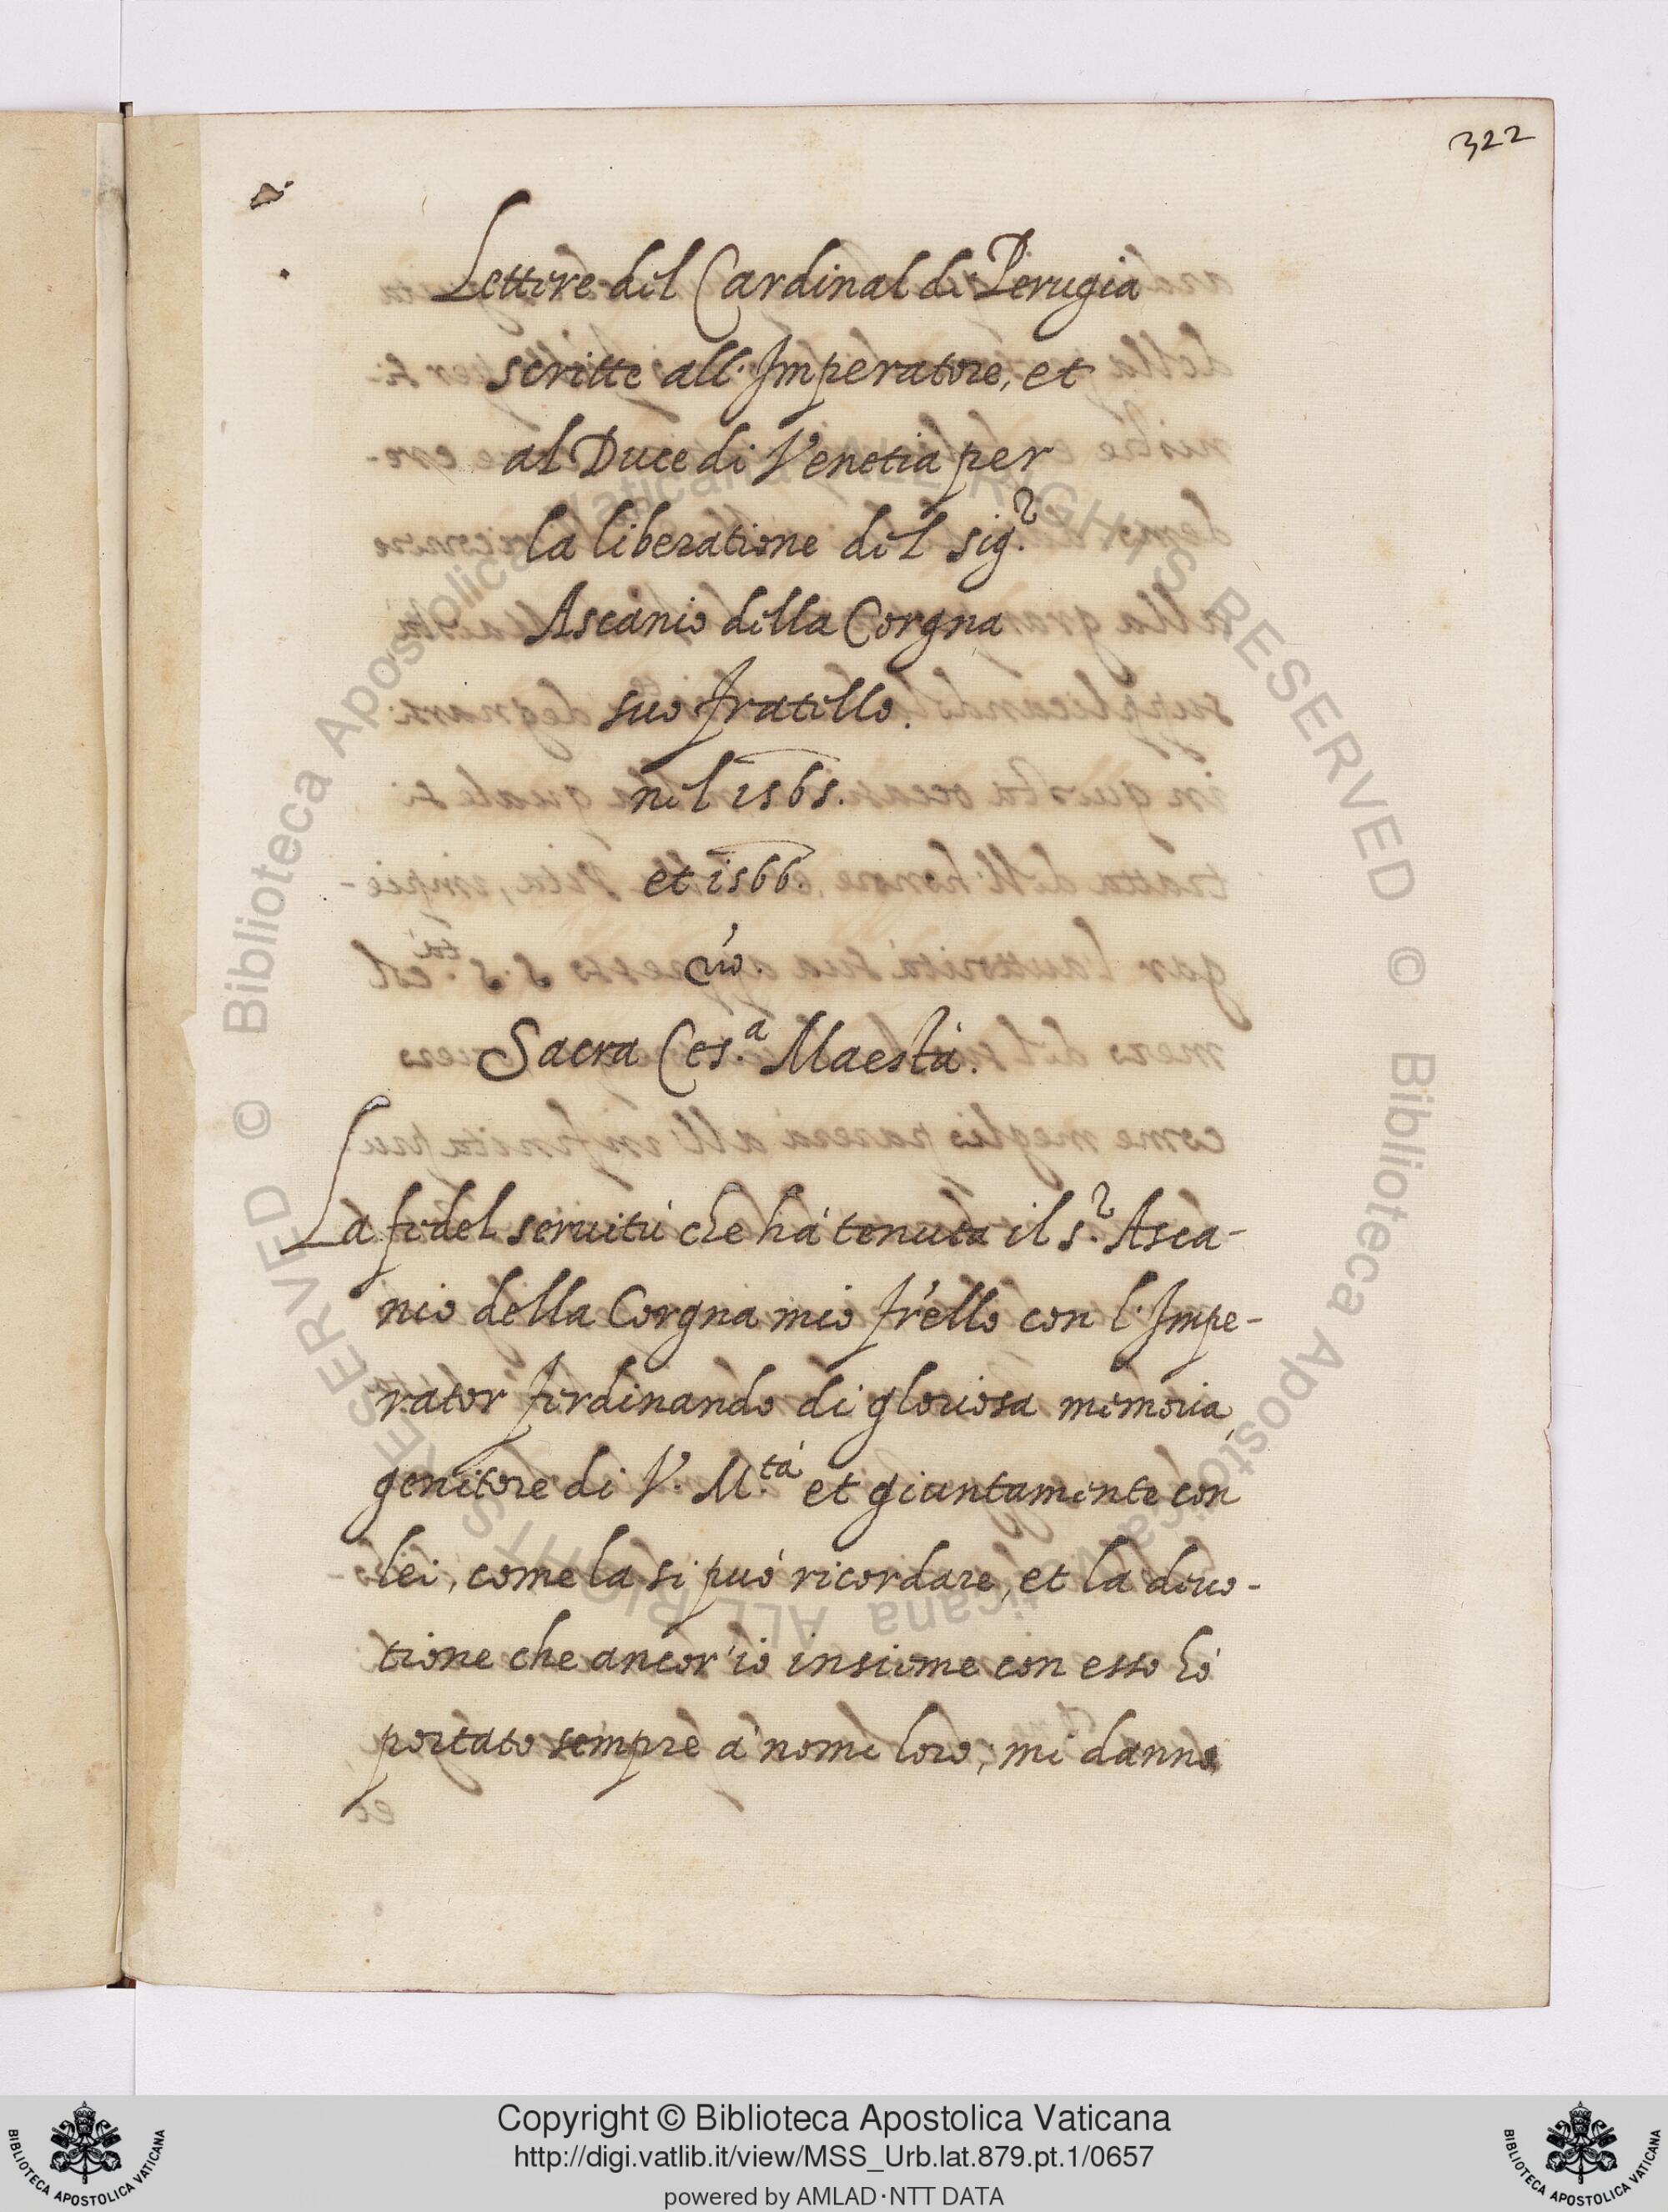 322
Lettere del Cardinal di Perugia
scritte all'Imperatore, et
al Duce di Venetia per
la liberatione del sig.r
Ascanio della Corgna
suo fratello.
nel 1565.
et 1566.
Sacra Ces.a Maestà.
La fedel seruitù che hà tenuta il s.r Asca-
nio della Corgna mio fr'ello con l'Impe-
rator ferdinando di gloriosa memoria,
genitore di V. M.tà et giuntamente con
lei, come la si può ricordare, et la deuo-
tione che ancor'io insieme con esso hò
portato sempre à nome loro, mi danno
Copyright © Biblioteca Apostolica Vaticana
http://digi.vatlib.it/view/MSS_Urb.lat.879.pt.1/0657
powered by AMLAD·NTT DATA
BIBLIOTECA APOSTOLICA VATICANA
BIBLIOTECA APOSTOLICA VATICANA